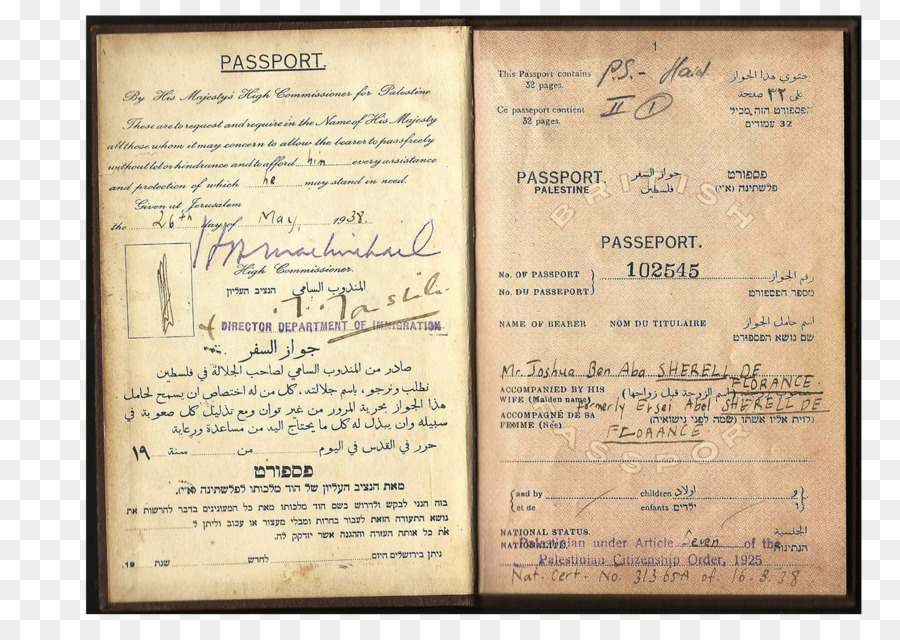 PASSPORT.
By His Majesty's High Commissioner for Palestine
These are to request and require in the Name of His Majesty
all those whom it may concern to allow the bearer to pass freely
without let or hindrance and to afford him every assistance
and protection of which he may stand in need.
Given at Jerusalem
the 26th day of May, 1938.
High Commissioner.
المندوب السامي הנציב העליון
DIRECTOR DEPARTMENT OF IMMIGRATION
جواز السفر
صادر من المندوب السامي لصاحب الجلالة في فلسطين
نطلب ونرجو، باسم جلالته، كل من له اختصاص ان يسمح لحامل
هذا الجواز بحرية المرور من غير توان ومع تذليل كل صعوبة في
سبيله وان يبذل له كل ما يحتاج اليه من مساعدة ورعاية
حرر في القدس في اليوم من سنة ١٩
פספורט
מאת הנציב העליון של הוד מלכותו לפלשתינה (א״י).
בזה הנני לבקש ולדרוש בשם הוד מלכותו מאת כל המעונינים בדבר להרשות את
נושא התעודה הזאת לעבור בחרות ומבלי מעצור או עכוב וליתן ל
את כל אותה העזרה וההגנה אשר יזדקק לה.
ניתן בירושלים היום לחדש שנת 19
1
This Passport contains
32 pages.
Ce passeport contient
32 pages.
P.S.- Haid.
II 1
يحتوي هذا الجواز
على ٣٢ صفحة
הפספורט הזה מכיל
32 עמודים
PASSPORT. جواز السفر פספורט
PALESTINE فلسطين פלשתינה (א״י)
BRITISH
PASSEPORT.
No. OF PASSPORT 102545 رقم الجواز
No. DU PASSEPORT מספר הפספורט
NAME OF BEARER NOM DU TITULAIRE اسم حامل الجواز
שם נושא הפספורט
Mr. Joshua Ben Aba SHERELL DE
FLORANCE.
ACCOMPANIED BY HIS
WIFE (Maiden name) (اسم الزوجة قبل زواجها)
formerly Abel SHERELL DE
ACCOMPAGNÉ DE SA
FEMME (Née) נלוית אליו אשתו (שמה לפני נישואיה)
FLORANCE
PASSPORT
and by children اولاد و
et de enfants ילדים ו
NATIONAL STATUS. الجنسية
NATIONALITÉ. הנתינות
Palestinian under Article Seven of the
Palestinian Citizenship Order, 1925
Nat. Cert. No. 31365A of 16.3.38